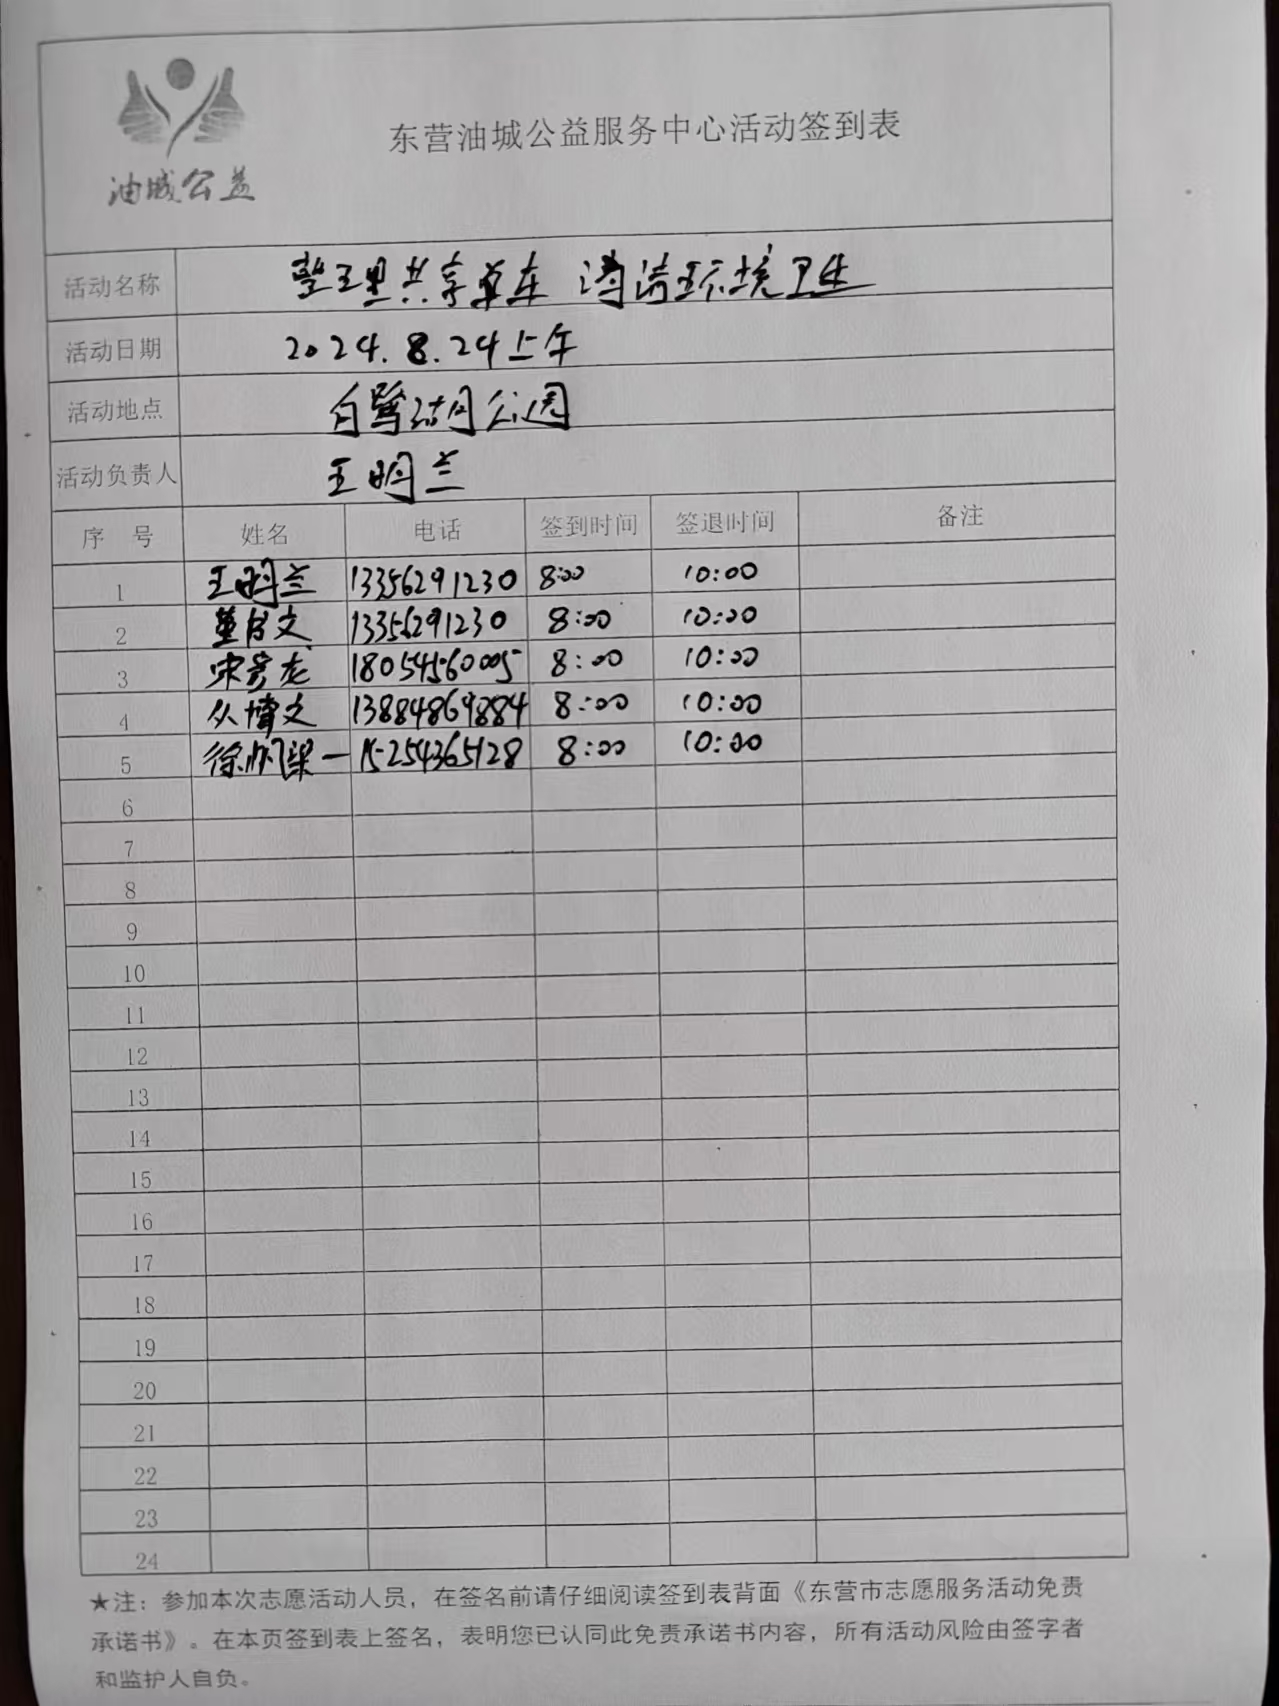 油城公益
东营油城公益服务中心活动签到表
活动名称 整理共享单车 清洁环境卫生
活动日期 2024.8.24上午
活动地点 白鹭湖公园
活动负责人 王明兰
序 号 姓名 电话 签到时间 签退时间 备注
1 王明兰 13356291230 8:00 10:00
2 董 文 13356291230 8:00 10:00
3 宋 龙 18054560005 8:00 10:00
4 从博文 13884869884 8:00 10:00
5 徐 15254365128 8:00 10:00
6
7
8
9
10
11
12
13
14
15
16
17
18
19
20
21
22
23
24
★注：参加本次志愿活动人员，在签名前请仔细阅读签到表背面《东营市志愿服务活动免责
承诺书》。在本页签到表上签名，表明您已认同此免责承诺书内容，所有活动风险由签字者
和监护人自负。